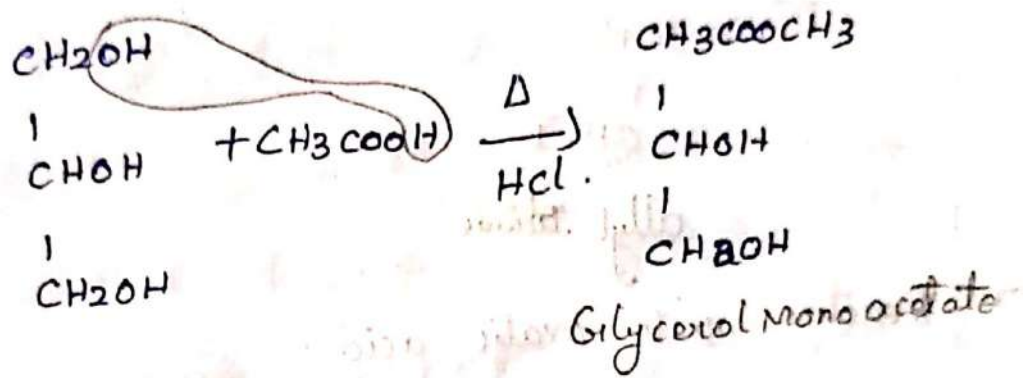 CH2OH
|
CHOH
|
CH2OH
+CH3COOH
Δ
HCl.
CH3COOCH3
|
CHOH
|
CH2OH
Glycerol Mono acetate